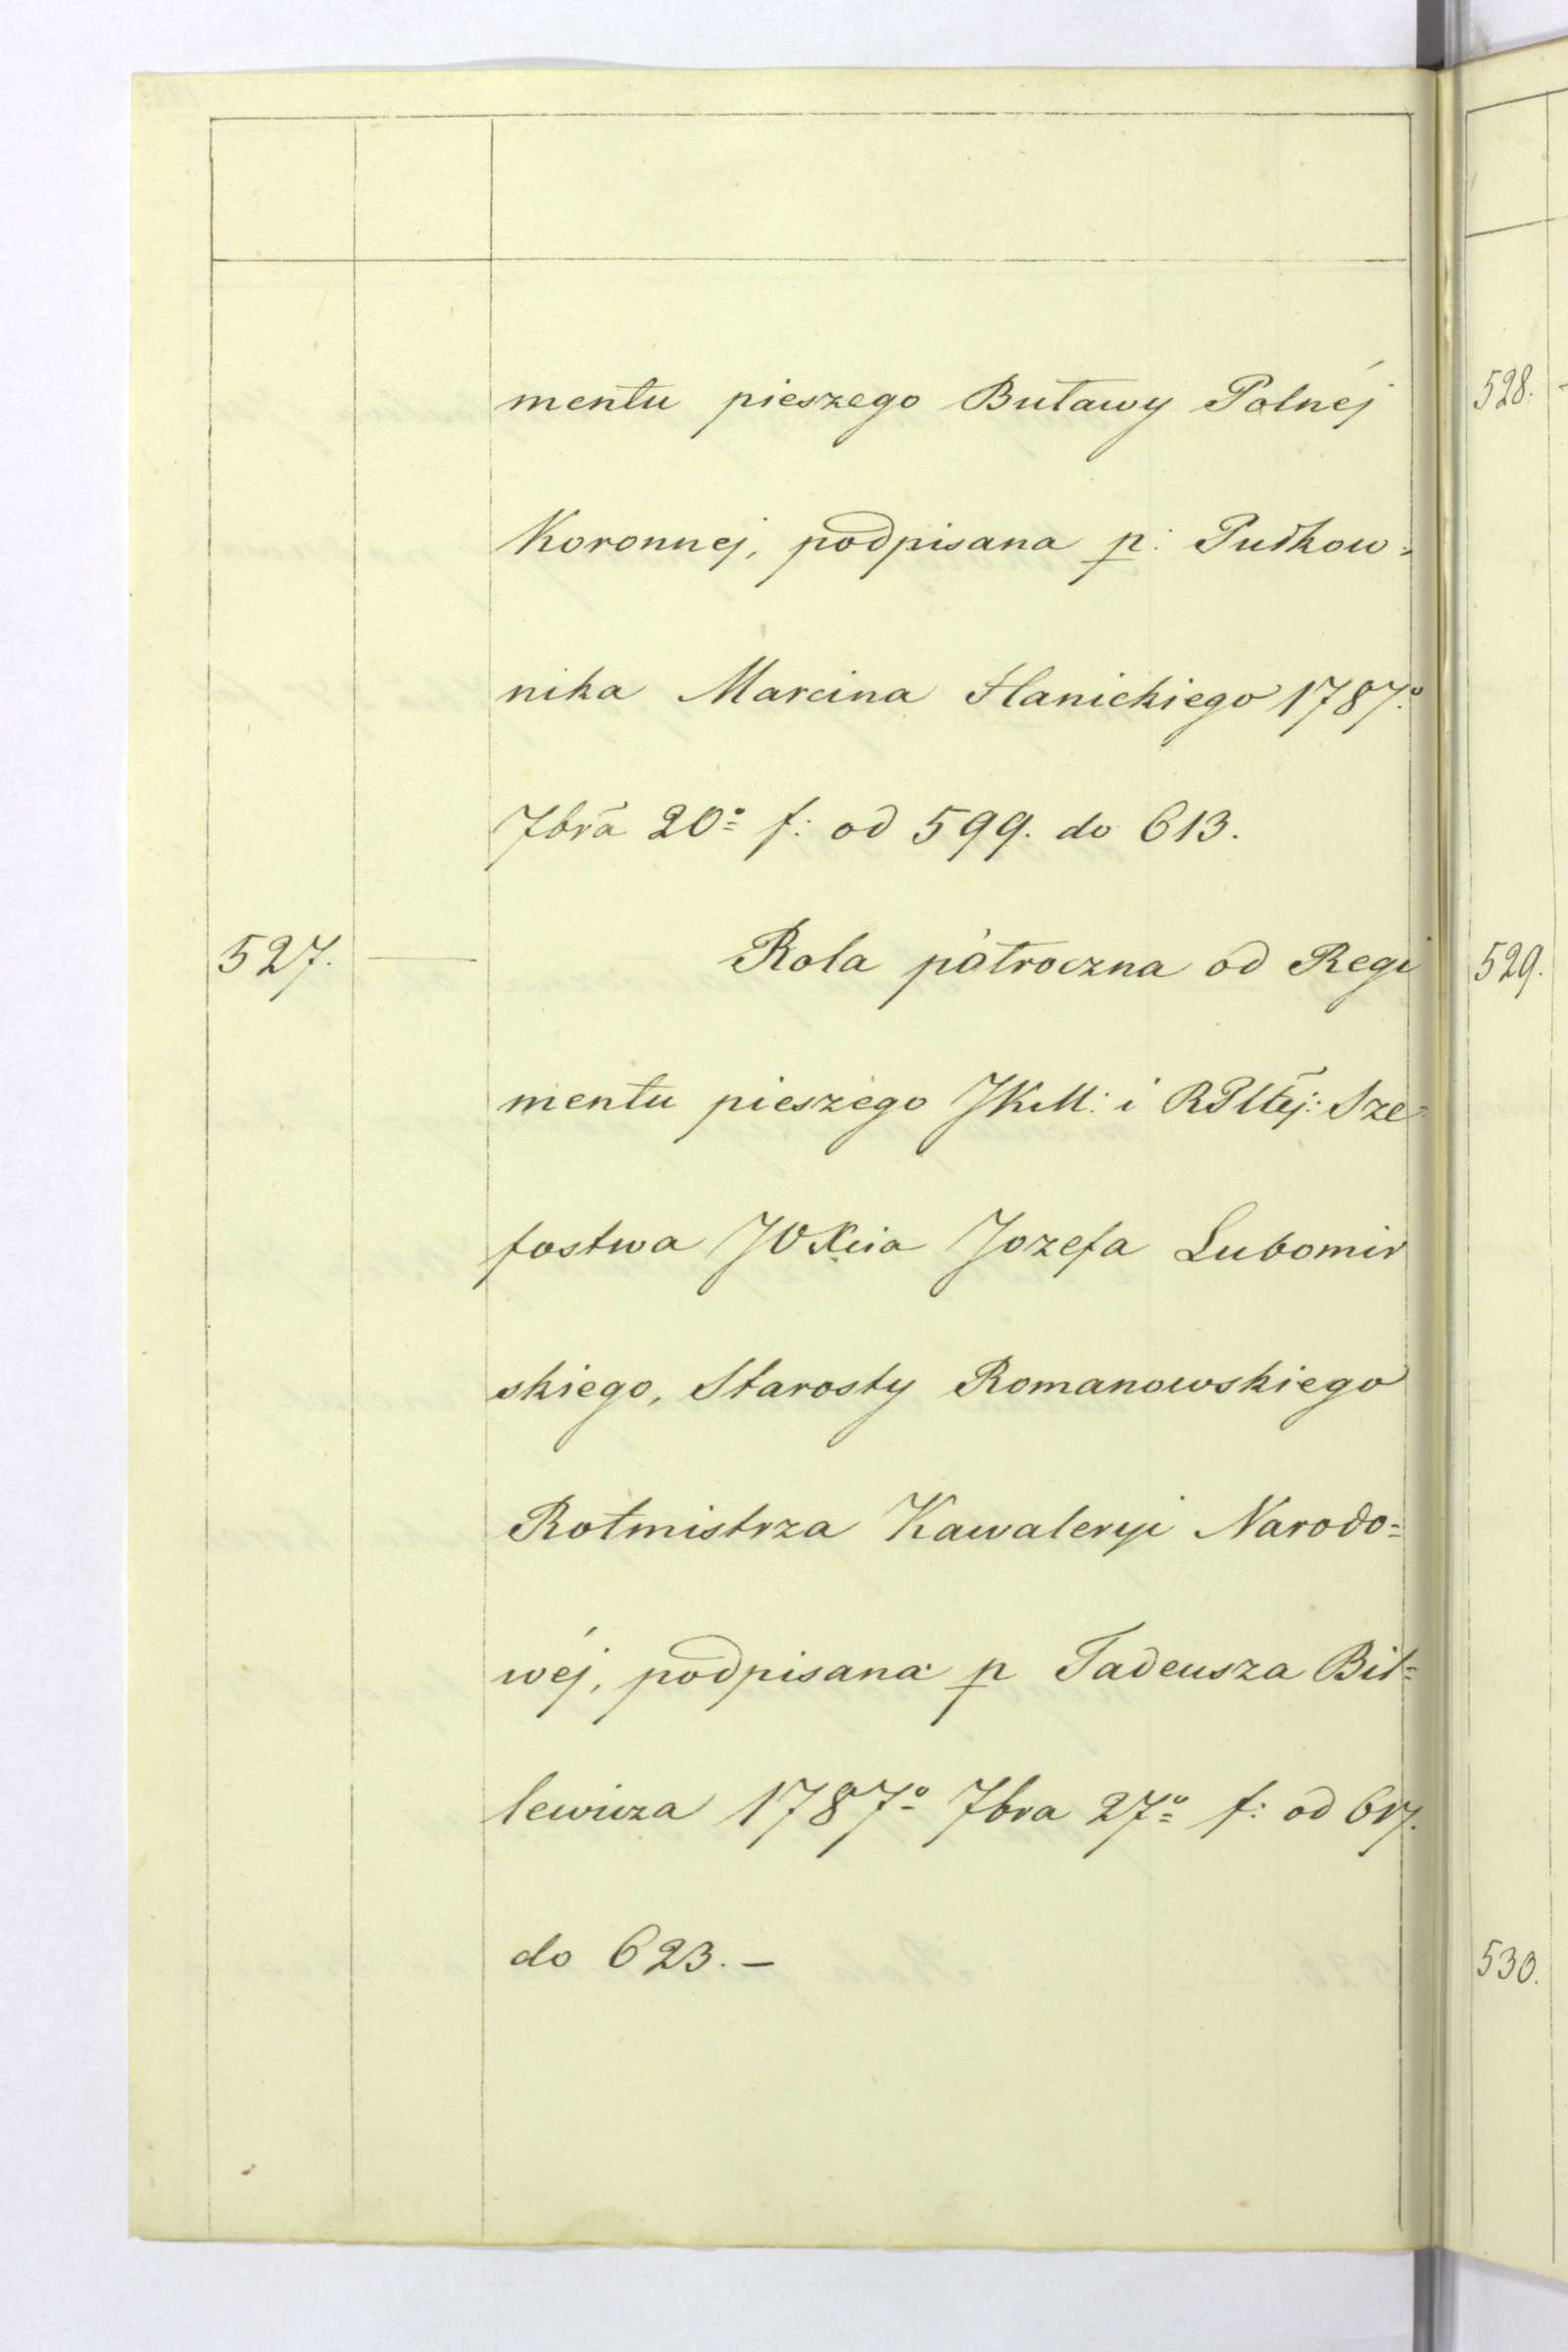 mentu pieszego Buławy Polnéj
Koronnej, podpisana p: Pułkow=
nika Marcina Hanickiego 1787º
7bra 20º f: od 599. do 613.
527. — Rola półroczna od Regi
mentu pieszego JKM: i RPltéj: Sze=
fostwa JO Xcia Jozefa Lubomir
skiego, Starosty Romanowskiego
Rotmistrza Kawaleryi Narodo=
wéj, podpisana p Tadeusza Bil=
lewicza 1787º 7bra 27º f: od 617.
do 623. –
528.
529.
530.